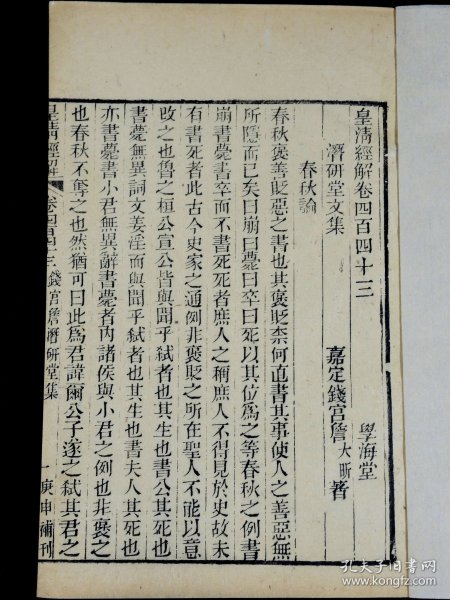 皇清經解卷四百四十三 學海堂
潛研堂文集 嘉定錢宮詹大昕著
春秋論
春秋褒善貶惡之書也其褒貶柰何直書其事使人之善惡無
所隱而已矣曰崩曰薨曰卒曰死以其位爲之等春秋之例書
崩書薨書卒而不書死死者庶人之稱庶人不得見於史故未
有書死者此古今史家之通例非褒貶之所在聖人不能以意
改之也魯之桓公宣公皆與聞乎弑者也其生也書公其死也
書薨無異詞文姜淫而與聞乎弑者也其生也書夫人其死也
亦書薨書小君無異辭書薨者內諸侯與小君之例也非褒之
也春秋不奪之也然猶可曰此爲君諱爾公子遂之弑其君之
皇清經解 卷四百四十三 錢宮詹潛研堂集 一 庚申補刊
孔夫子旧书网
www.kongfz.com